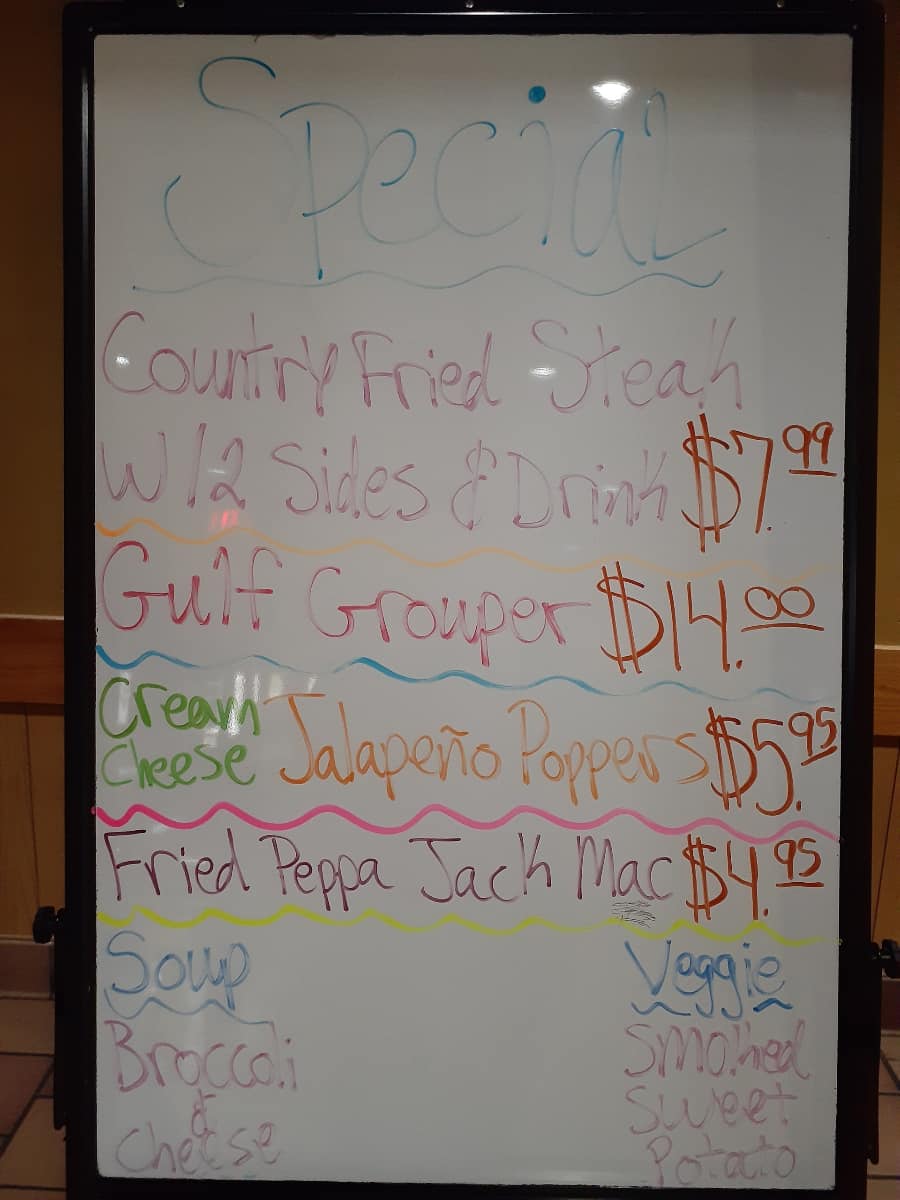 Special
Country Fried Steak
W/2 Sides & Drink $7.99
Gulf Grouper $14.00
Cream Cheese Jalapeño Poppers $5.95
Fried Peppa Jack Mac $4.95
Soup Veggie
Broccoli Smoked
& Sweet
Cheese Potato